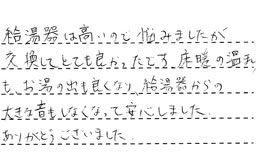 給湯器は高いので悩みましたが
交換してとても良かったです。床暖の温まり
も、お湯の出も良くなり、給湯器からの
大きな音もしなくなって安心しました。
ありがとうございました。